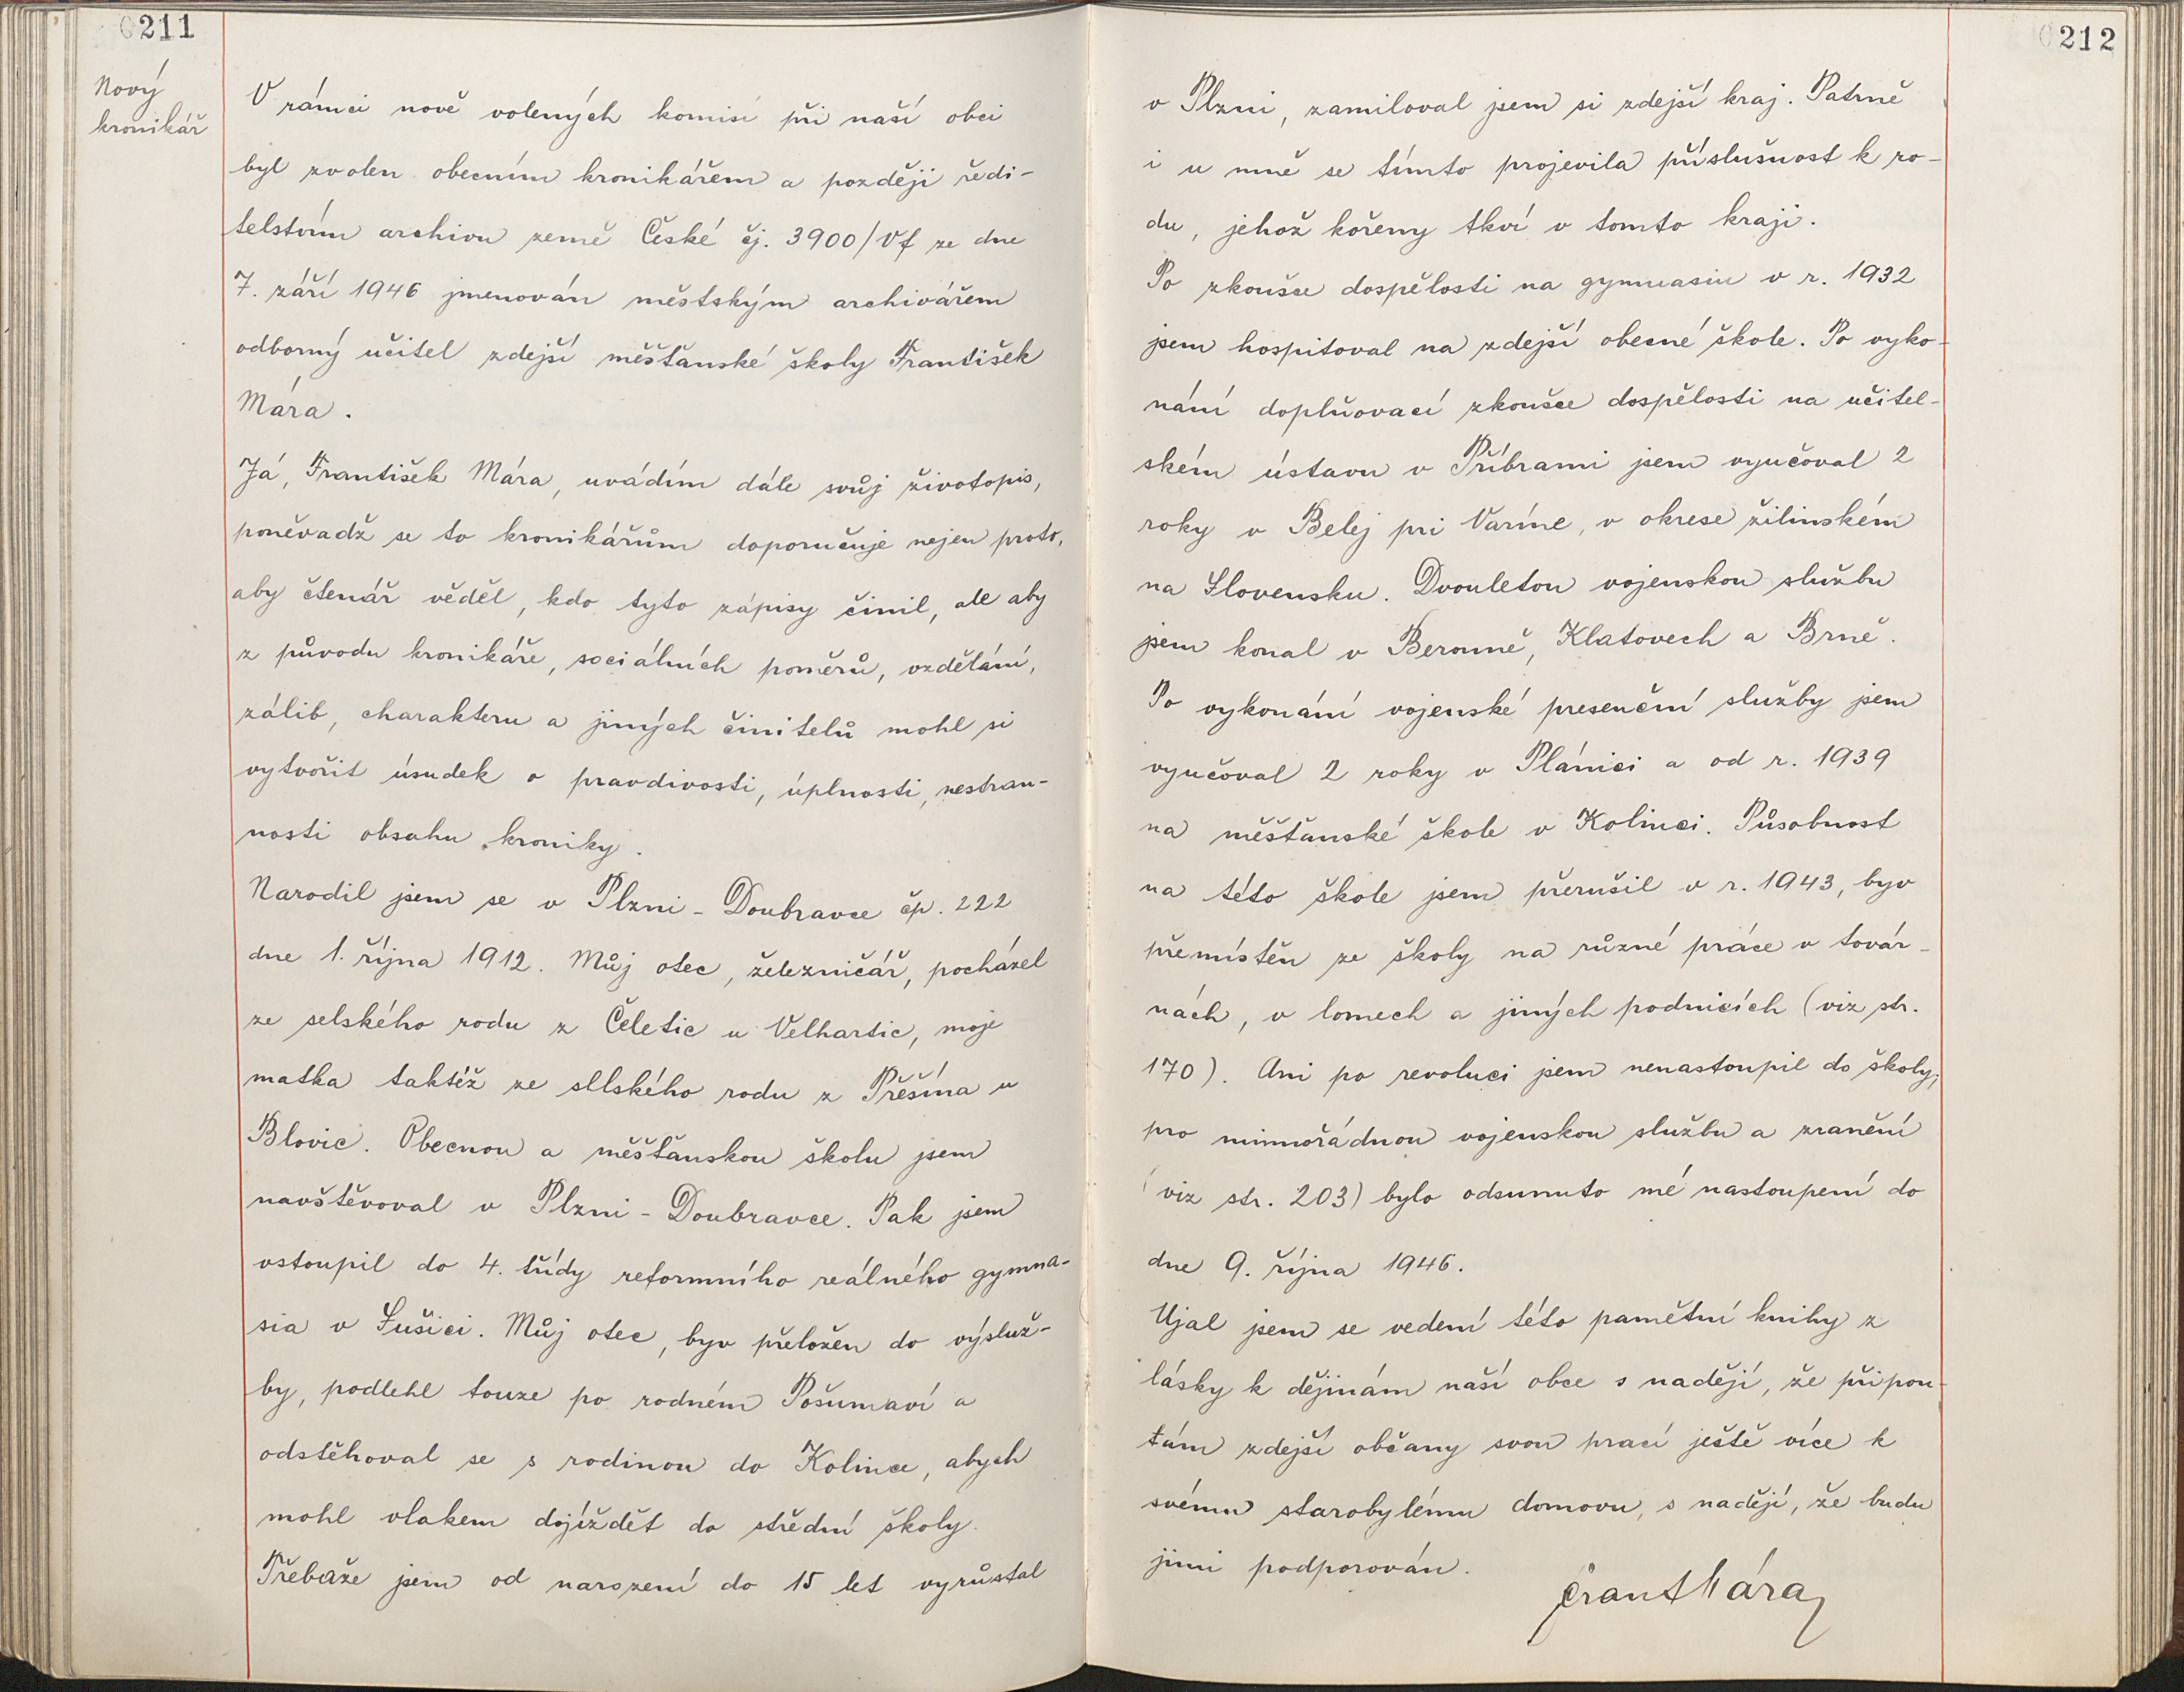 211
Nový
kronikář
V rámci nově volených komisí při naší obci
byl zvolen obecním kronikářem a později ředi-
telstvím archivu země České čj. 3900/Vf ze dne
7. září 1946 jmenován městským archivářem
odborný učitel zdejší měšťanské školy František
Mára.
Já, František Mára, uvádím dále svůj životopis,
poněvadž se to kronikářům doporučuje nejen proto,
aby čtenář věděl, kdo tyto zápisy činil, ale aby
z původu kronikáře, sociálních poměrů, vzdělání,
zálib, charakteru a jiných činitelů mohl si
vytvořit úsudek o pravdivosti, úplnosti, nestran-
nosti obsahu kroniky.
Narodil jsem se v Plzni - Doubravce čp. 222
dne 1. října 1912. Můj otec, železničář, pocházel
ze selského rodu z Čeletic u Velhartic, moje
matka taktéž ze sllského rodu z Přešína u
Blovic. Obecnou a měšťanskou školu jsem
navštěvoval v Plzni - Doubravce. Pak jsem
vstoupil do 4. třídy reformního reálného gymna-
sia v Sušici. Můj otec, byv přeložen do výsluž-
by, podlehl touze po rodném Pošumaví a
odstěhoval se s rodinou do Kolince, abych
mohl vlakem dojíždět do střední školy.
Třebaže jsem od narození do 15 let vyrůstal
212
v Plzni, zamiloval jsem si zdejší kraj. Patrně
i u mně se tímto projevila příslušnost k ro-
du, jehož kořeny tkví v tomto kraji.
Po zkoušce dospělosti na gymnasiu v r. 1932
jsem hospitoval na zdejší obecné škole. Po vyko-
nání doplňovací zkoušce dospělosti na učitel-
ském ústavu v Příbrami jsem vyučoval 2
roky v Belej pri Varíne, v okrese žilinském
na Slovensku. Dvouletou vojenskou službu
jsem konal v Berouně, Klatovech a Brně.
Po vykonání vojenské presenční služby jsem
vyučoval 2 roky v Plánici a od r. 1939
na měšťanské škole v Kolinci. Působnost
na této škole jsem přerušil v r. 1943, byv
přemístěn ze školy na různé práce v továr-
nách, v lomech a jiných podnicích (viz str.
170). Ani po revoluci jsem nenastoupil do školy;
pro mimořádnou vojenskou službu a zranění
(viz str. 203) bylo odsunuto mé nastoupení do
dne 9. října 1946.
Ujal jsem se vedení této pamětní knihy z
lásky k dějinám naší obce s nadějí, že připou-
tám zdejší občany svou prací ještě více k
svému starobylému domovu, s nadějí, že budu
jimi podporován.
Frant Mára